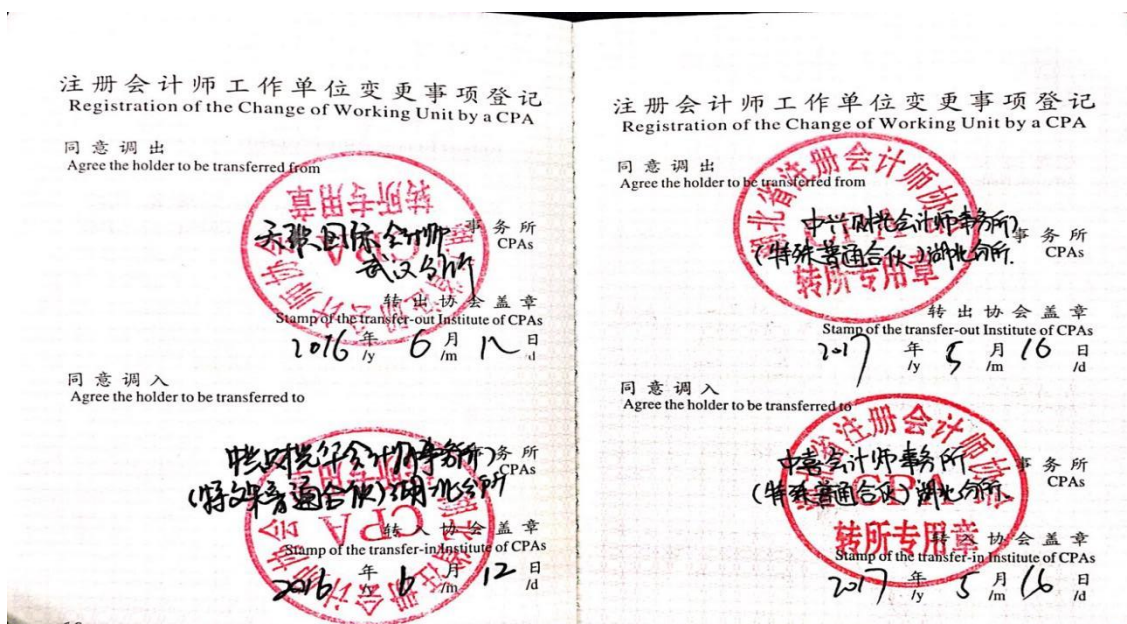 注册会计师工作单位变更事项登记
Registration of the Change of Working Unit by a CPA
同意调出
Agree the holder to be transferred from
转所专用章
国际会计师
事务所
CPAs
武汉分所
转出协会盖章
Stamp of the transfer-out Institute of CPAs
2016 年 6 月 12 日
/y /m /d
同意调入
Agree the holder to be transferred to
会计师事务所
事务所
CPAs
(特殊普通合伙)湖北分所
CPA
转入协会盖章
Stamp of the transfer-in Institute of CPAs
2016 年 6 月 12 日
/y /m /d
注册会计师工作单位变更事项登记
Registration of the Change of Working Unit by a CPA
同意调出
Agree the holder to be transferred from
湖北省注册会计师协会
中兴财光会计师事务所
事务所
CPAs
(特殊普通合伙)湖北分所.
转所专用章
转出协会盖章
Stamp of the transfer-out Institute of CPAs
2017 年 5 月 16 日
/y /m /d
同意调入
Agree the holder to be transferred to
湖北省注册会计师协会
中喜会计师事务所
事务所
CPAs
(特殊普通合伙)湖北分所.
CPA
转所专用章
转入协会盖章
Stamp of the transfer-in Institute of CPAs
2017 年 5 月 16 日
/y /m /d